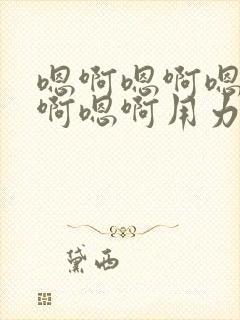 嗯啊嗯啊嗯
啊嗯啊用力
黛西